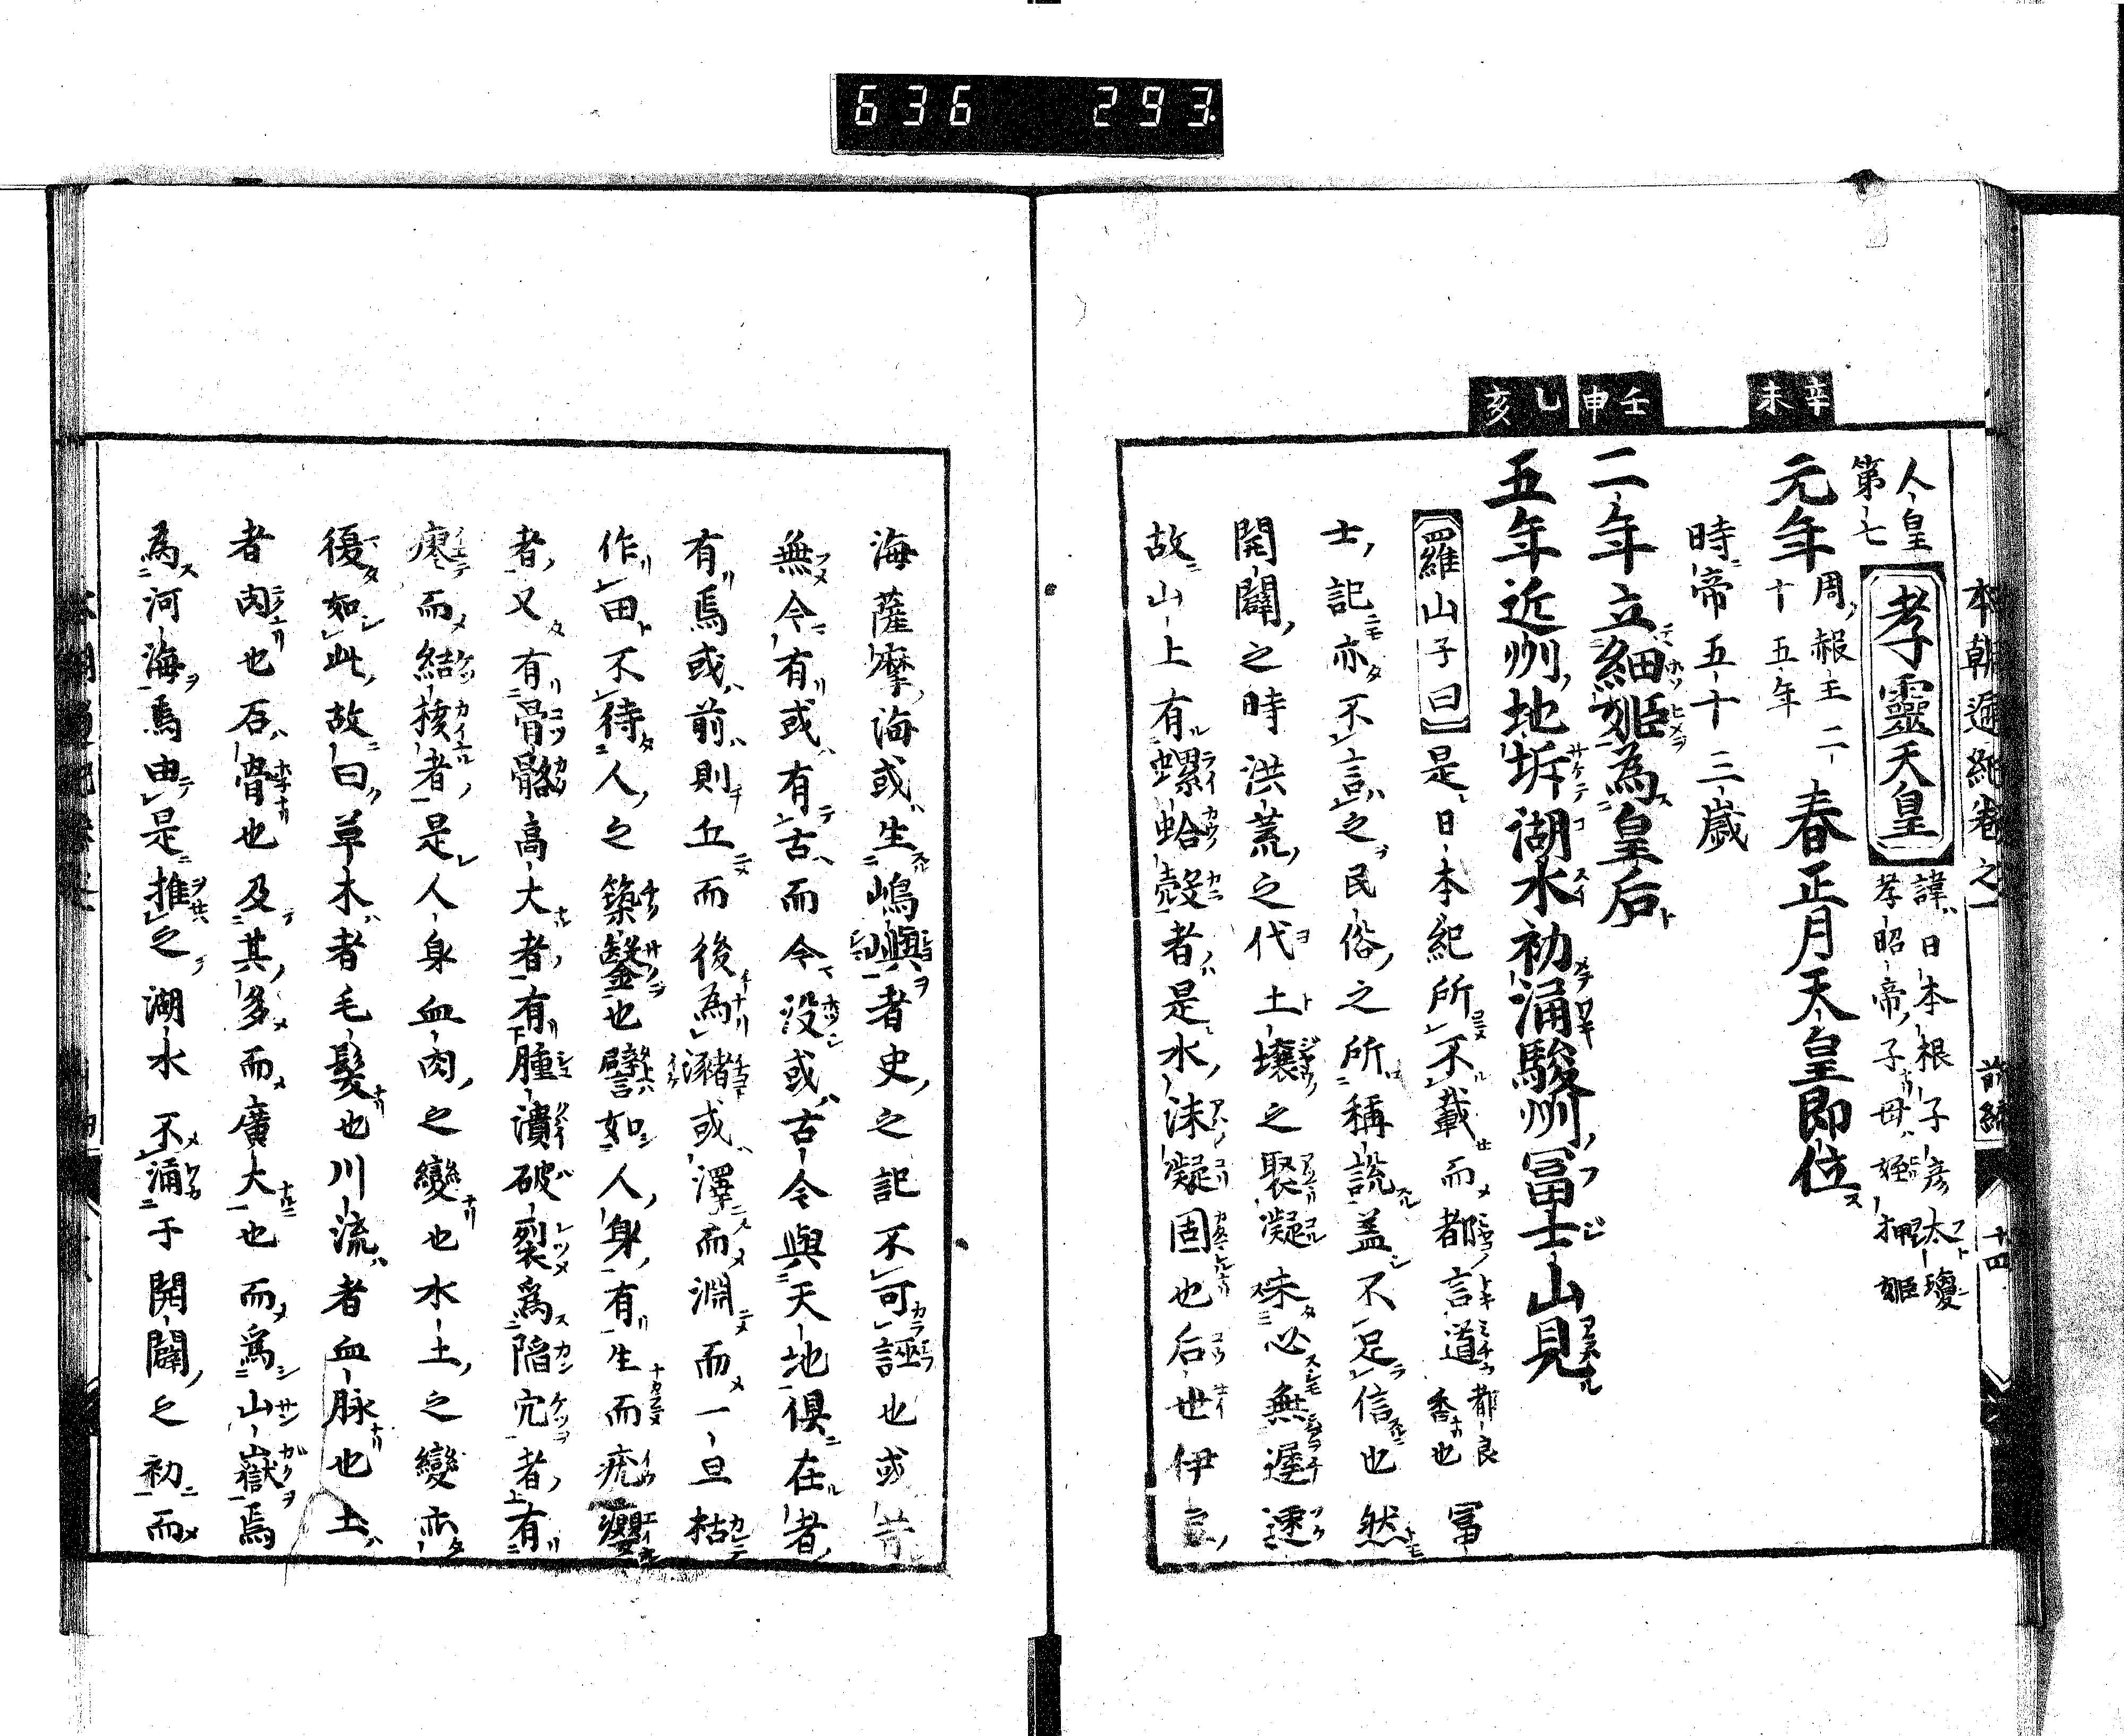 636 293
本朝通紀卷之一 前編 十四
辛未
壬申
乙亥
人皇第七 孝靈天皇 諱日本根子彥太瓊
孝昭帝子母姬押姬
元年 周赧王二十五年 春正月天皇即位
時帝五十三歲
二年立細姬為皇后
五年近州地坼湖水初涌駿州冨士山見
羅山子曰是日本紀所不載而都言道 都良香也 冨
士記亦不言之民俗之所稱説盖不足信也然
開闢之時洪荒之代土壤之聚凝未必無遲速
故山上有螺蛤殼者是水沫凝固也后世伊豆
海薩摩海或生嶋嶼者史之記不可誣也或昔
無今有或有古而今没或古今與天地俱在者
有焉或前則丘而後為瀦或澤而淵而一旦枯
作田不待人之築鑿也譬如人身有生而疣癭
者又有骨骼高大者有腫潰破裂爲陷宂者有
瘳而結核者是人身血肉之變也水土之變亦
復如此故曰草木者毛髮也川流者血脉也土
者肉也石者骨也及其多而廣大也而爲山嶽焉
爲河海焉由是推之湖水不涌于開闢之初而